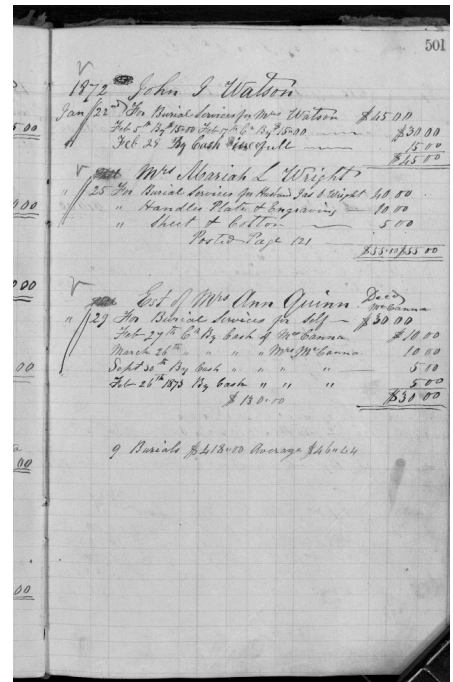 501
1872 John J Watson
Jan 22nd For Burial Services for Mrs Watson $45.00
Feb 5th By $15.00 Feb 17th Cr By $15.00 $30.00
Feb 28 By Cash in full 15.00
$45.00
Mrs Mariah L Wright
" 25 For Burial Services for Husband Jas S Wright 40.00
" Handles Plate & Engraving 10.00
" Sheet & Cotton 5.00
Posted Page 121
$55.00 $55.00
Est of Mrs Ann Quinn Decd
McCanna
" 29 For Burial Services for Self $30.00
Feb 27th Cr By Cash of McCanna $10.00
March 26th " " " " Mrs McCanna 10.00
Sept 30th By Cash " " " 5.00
Feb 26th 1873 By Cash " " " 5.00
$130.00 $30.00
9 Burials $418.00 Average $46.44